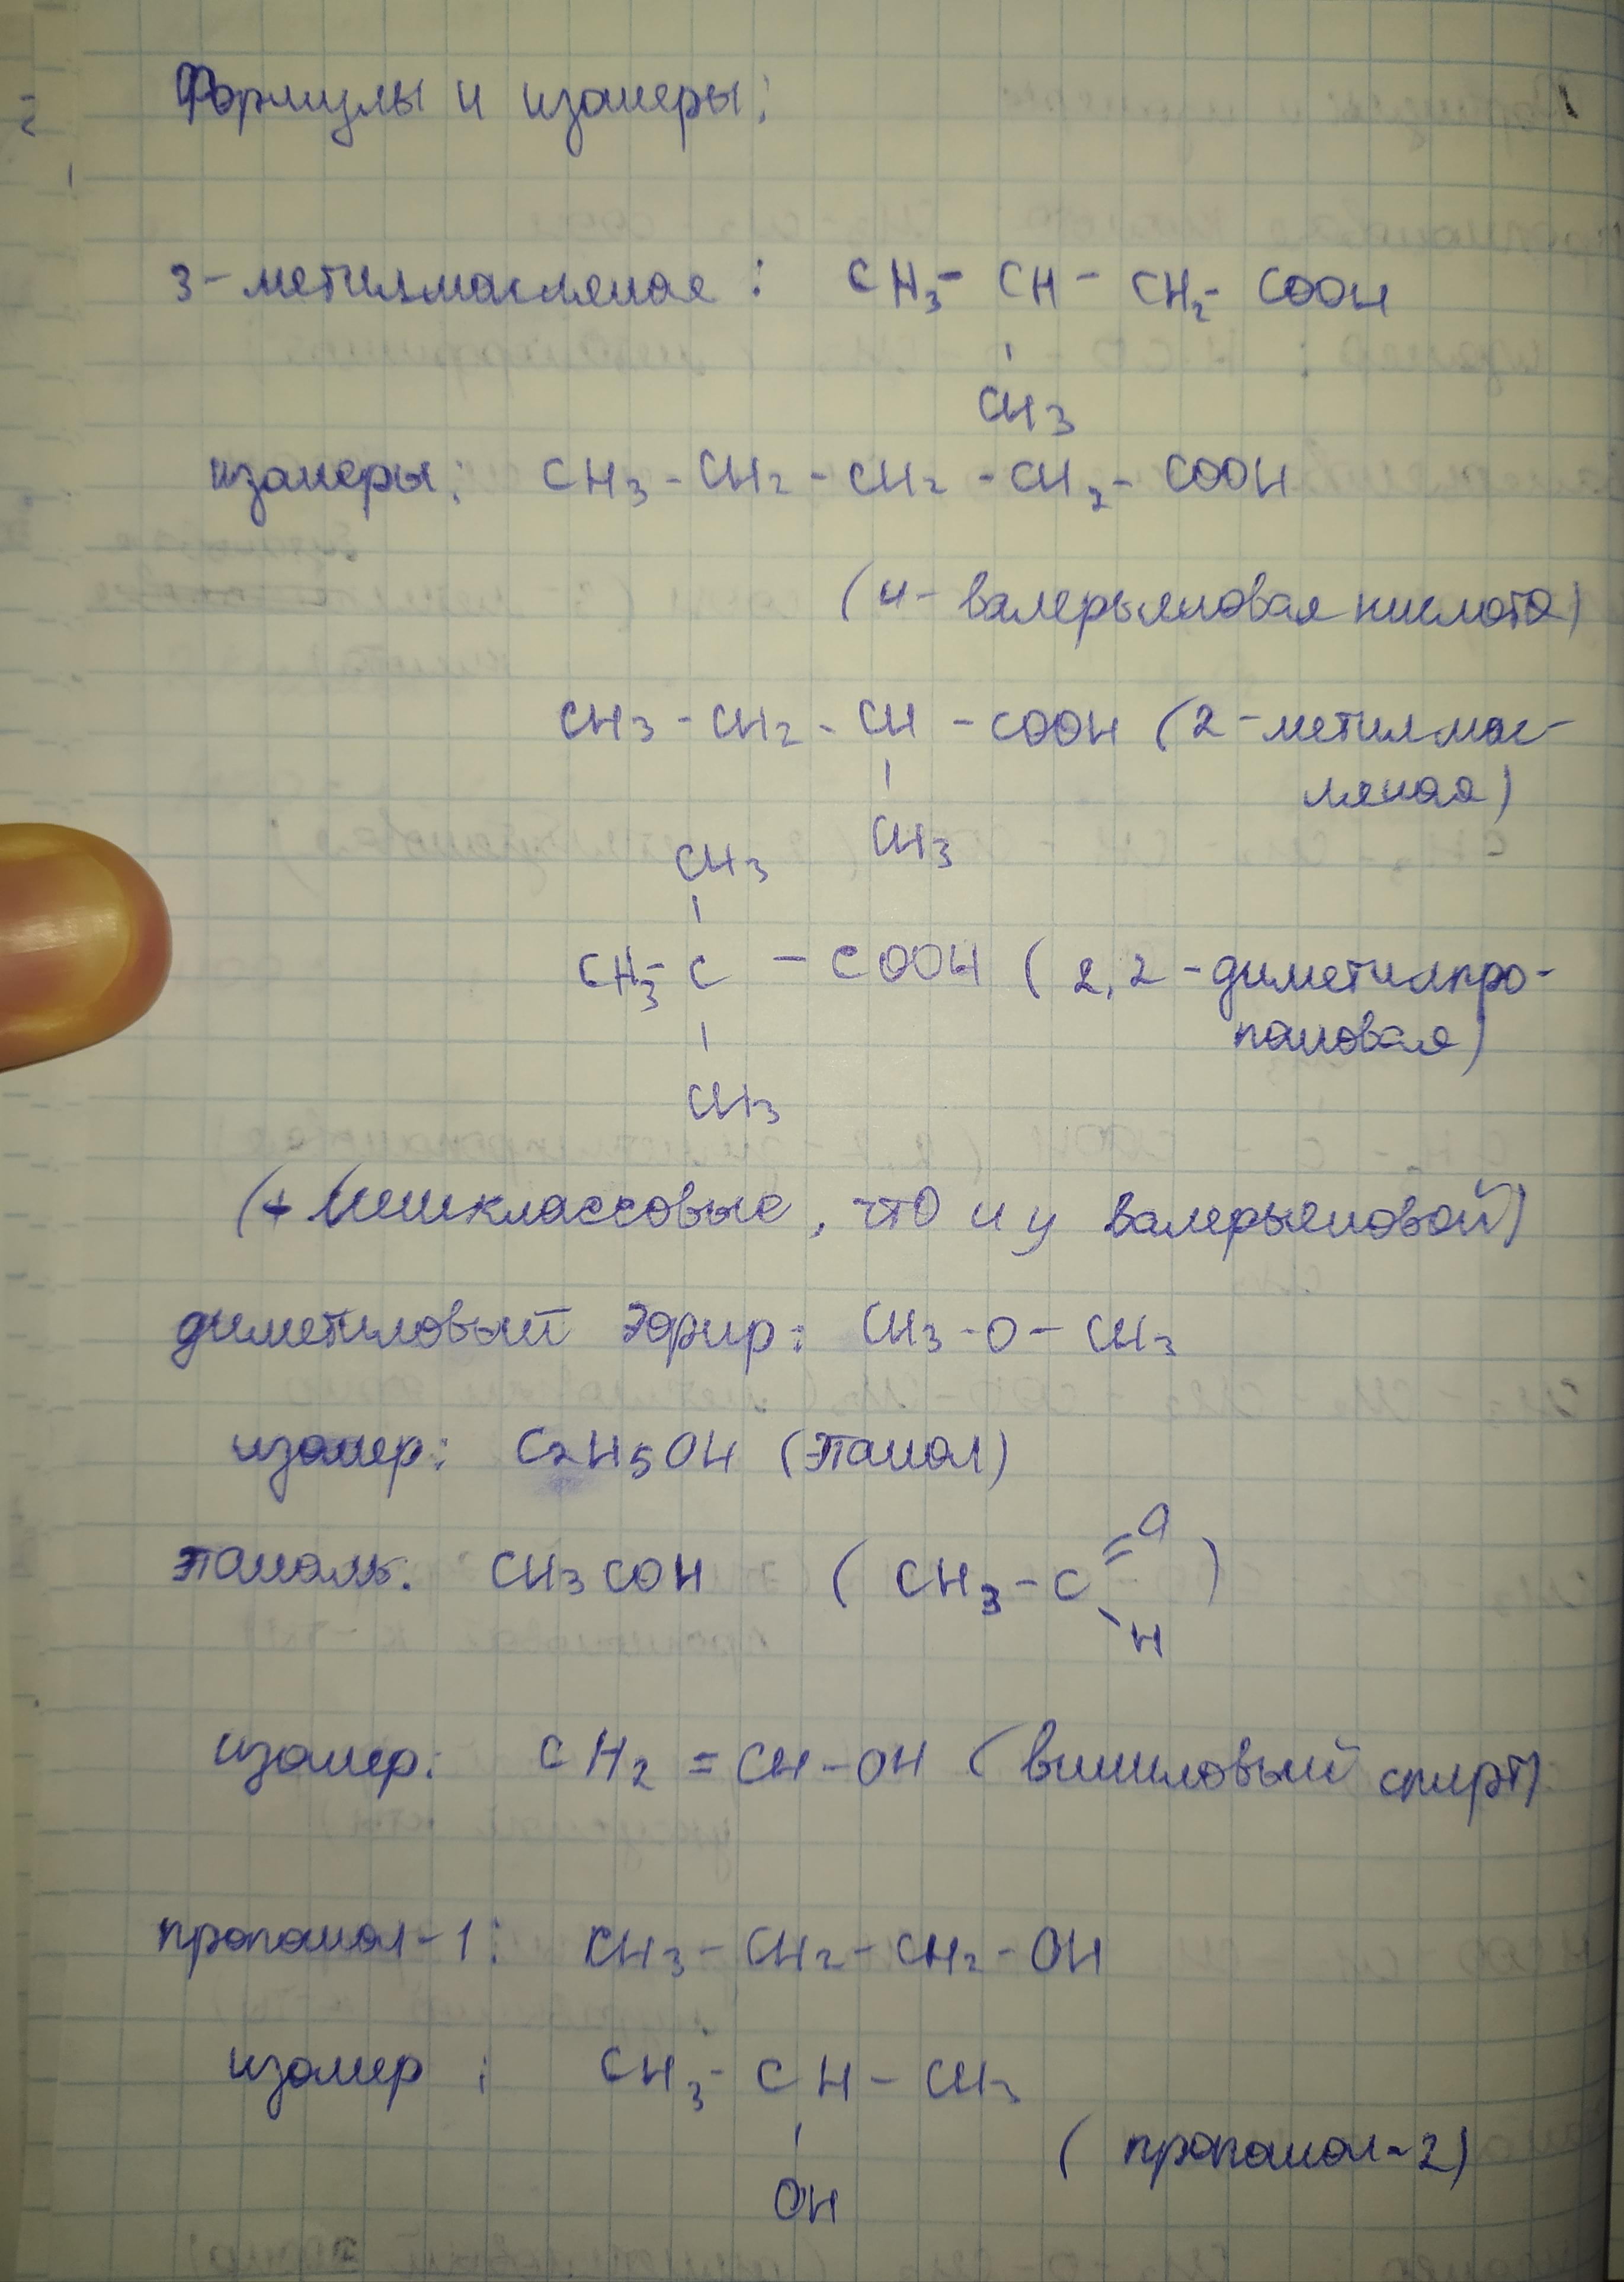 Формулы и изомеры:
3-метилмасляная: CH3 - CH - CH2 - COOH
CH3
изомеры: CH3 - CH2 - CH2 - CH2 - COOH
(н-валерьяновая кислота)
CH3 - CH2 - CH - COOH (2-метилмас-
ляная)
CH3
CH3
CH3 - C - COOH (2,2-диметилпро-
пановая)
CH3
(+ Межклассовые, что и у валерьяновой)
диметиловый эфир: CH3 - O - CH3
изомер: C2H5OH (этанол)
этаналь: CH3COH (CH3 - C =O
H)
изомер: CH2 = CH - OH (виниловый спирт)
пропанол-1: CH3 - CH2 - CH2 - OH
изомер: CH3 - CH - CH3
OH (пропанол-2)